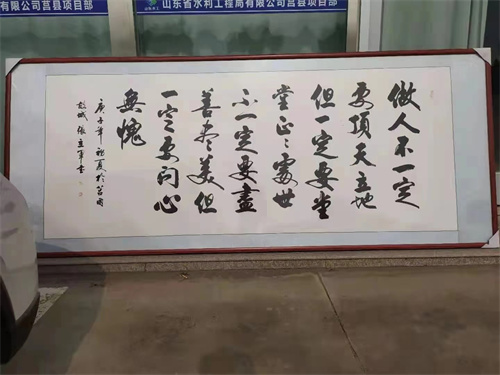 有限公司莒县项目部
山东省水利工程局有限公司莒县项目部
做人不一定
要頂天立地
但一定要堂
堂正々處世
不一定要盡
善尽美但
一定要问心
無愧
庚子年初夏於莒